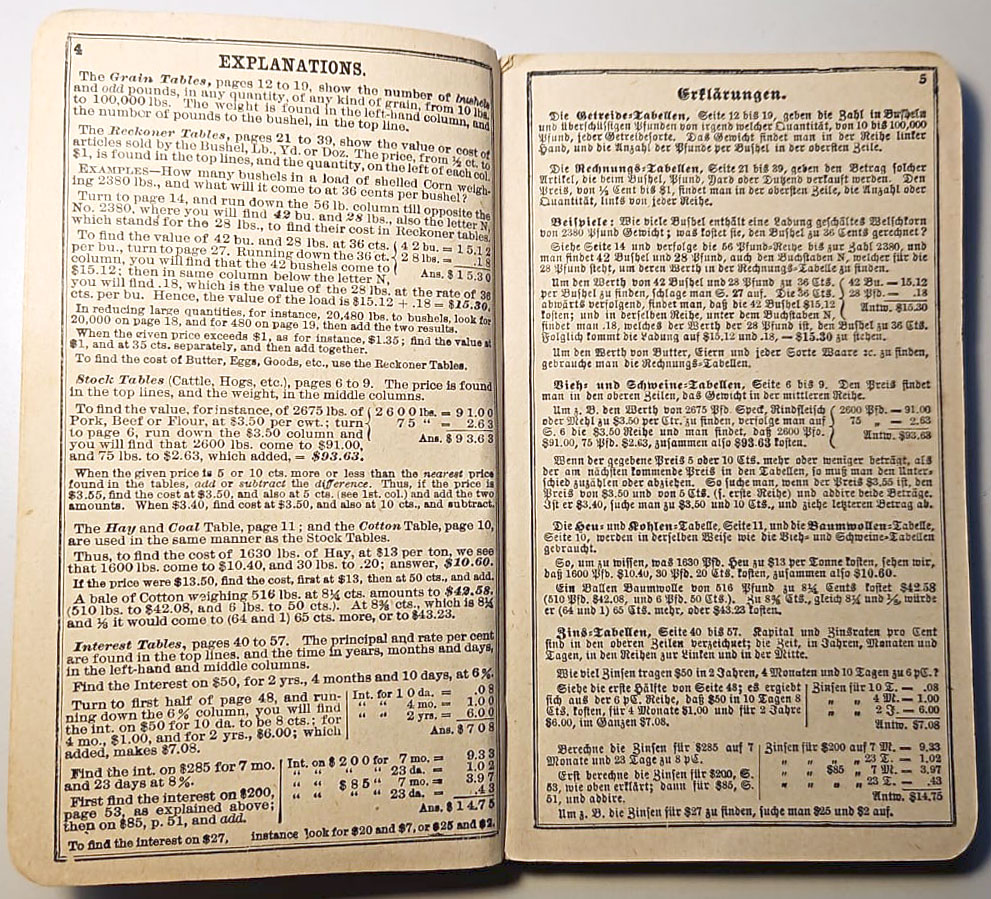 4
EXPLANATIONS.
The Grain Tables, pages 12 to 19, show the number of bushels
and odd pounds, in any quantity, of any kind of grain, from 10 lbs.
to 100,000 lbs. The weight is found in the left-hand column, and
the number of pounds to the bushel, in the top line.
The Reckoner Tables, pages 21 to 39, show the value or cost of
articles sold by the Bushel, Lb., Yd. or Doz. The price, from ½ ct. to
$1, is found in the top lines, and the quantity, on the left of each col.
EXAMPLES—How many bushels in a load of shelled Corn weigh-
ing 2380 lbs., and what will it come to at 36 cents per bushel?
Turn to page 14, and run down the 56 lb. column till opposite the
No. 2380, where you will find 42 bu. and 28 lbs., also the letter N,
which stands for the 28 lbs., to find their cost in Reckoner tables.
To find the value of 42 bu. and 28 lbs. at 36 cts. 42 bu. = 15.12
per bu., turn to page 27. Running down the 36 ct. 28 lbs. = .18
column, you will find that the 42 bushels come to Ans. $15.30
$15.12; then in same column below the letter N,
you will find .18, which is the value of the 28 lbs. at the rate of 36
cts. per bu. Hence, the value of the load is $15.12 + .18 = $15.30.
In reducing large quantities, for instance, 20,480 lbs. to bushels, look for
20,000 on page 18, and for 480 on page 19, then add the two results.
When the given price exceeds $1, as for instance, $1.35; find the value at
$1, and at 35 cts. separately, and then add together.
To find the cost of Butter, Eggs, Goods, etc., use the Reckoner Tables.
Stock Tables (Cattle, Hogs, etc.), pages 6 to 9. The price is found
in the top lines, and the weight, in the middle columns.
To find the value, for instance, of 2675 lbs. of 2600 lbs. = 91.00
Pork, Beef or Flour, at $3.50 per cwt.; turn 75 " = 2.63
to page 6, run down the $3.50 column and Ans. $93.63
you will find that 2600 lbs. come to $91.00,
and 75 lbs. to $2.63, which added, = $93.63.
When the given price is 5 or 10 cts. more or less than the nearest price
found in the tables, add or subtract the difference. Thus, if the price is
$3.55, find the cost at $3.50, and also at 5 cts. (see 1st. col.) and add the two
amounts. When $3.40, find cost at $3.50, and also at 10 cts., and subtract.
The Hay and Coal Table, page 11; and the Cotton Table, page 10,
are used in the same manner as the Stock Tables.
Thus, to find the cost of 1630 lbs. of Hay, at $13 per ton, we see
that 1600 lbs. come to $10.40, and 30 lbs. to .20; answer, $10.60.
If the price were $13.50, find the cost, first at $13, then at 50 cts., and add.
A bale of Cotton weighing 516 lbs. at 8¼ cts. amounts to $42.58,
(510 lbs. to $42.08, and 6 lbs. to 50 cts.). At 8⅜ cts., which is 8¼
and ⅛ it would come to (64 and 1) 65 cts. more, or to $43.23.
Interest Tables, pages 40 to 57. The principal and rate per cent
are found in the top lines, and the time in years, months and days,
in the left-hand and middle columns.
Find the Interest on $50, for 2 yrs., 4 months and 10 days, at 6%.
Turn to first half of page 48, and run- Int. for 10 da. = .08
ning down the 6% column, you will find " " 4 mo. = 1.00
the int. on $50 for 10 da. to be 8 cts.; for " " 2 yrs. = 6.00
4 mo., $1.00, and for 2 yrs., $6.00; which Ans. $7.08
added, makes $7.08.
Find the int. on $285 for 7 mo. Int. on $200 for 7 mo. = 9.33
and 23 days at 8%. " " " " 23 da. = 1.02
First find the interest on $200, " " $85 " 7 mo. = 3.97
page 53, as explained above; " " " " 23 da. = .43
then on $85, p. 51, and add. Ans. $14.75
To find the interest on $27, instance look for $20 and $7, or $25 and $2.
5
Erklärungen.
Die Getreide-Tabellen, Seite 12 bis 19, geben die Zahl in Busheln
und überschüssigen Pfunden von irgend welcher Quantität, von 10 bis 100,000
Pfund, jeder Getreidesorte. Das Gewicht findet man in der Reihe linker
Hand, und die Anzahl der Pfunde per Bushel in der obersten Zeile.
Die Rechnungs-Tabellen, Seite 21 bis 39, geben den Betrag solcher
Artikel, die beim Bushel, Pfund, Yard oder Dutzend verkauft werden. Den
Preis, von ½ Cent bis $1, findet man in der obersten Zeile, die Anzahl oder
Quantität, links von jeder Reihe.
Beispiele: Wie viele Bushel enthält eine Ladung geschältes Welschkorn
von 2380 Pfund Gewicht; was kostet sie, den Bushel zu 36 Cents gerechnet?
Siehe Seite 14 und verfolge die 56 Pfund-Reihe bis zur Zahl 2380, und
man findet 42 Bushel und 28 Pfund, auch den Buchstaben N, welcher für die
28 Pfund steht, um deren Werth in der Rechnungs-Tabelle zu finden.
Um den Werth von 42 Bushel und 28 Pfund zu 36 Cts. 42 Bu. — 15.12
per Bushel zu finden, schlage man S. 27 auf. Die 36 Cts. 28 Pfd. — .18
abwärts verfolgend, findet man, daß die 42 Bushel $15,12 Antw. $15.30
kosten; und in derselben Reihe, unter dem Buchstaben N,
findet man .18, welches der Werth der 28 Pfund ist, den Bushel zu 36 Cts.
Folglich kommt die Ladung auf $15.12 und .18, — $15.30 zu stehen.
Um den Werth von Butter, Eiern und jeder Sorte Waare ꝛc. zu finden,
gebrauche man die Rechnungs-Tabellen.
Vieh- und Schweine-Tabellen, Seite 6 bis 9. Den Preis findet
man in den oberen Zeilen, das Gewicht in der mittleren Reihe.
Um z. B. den Werth von 2675 Pfd. Speck, Rindfleisch 2600 Pfd. — 91.00
oder Mehl zu $3.50 per Ctr. zu finden, verfolge man auf 75 „ — 2.63
S. 6 die $3.50 Reihe und man findet, daß 2600 Pfd. Antw. $93.63
$91.00, 75 Pfd. $2.63, zusammen also $93.63 kosten.
Wenn der gegebene Preis 5 oder 10 Cts. mehr oder weniger beträgt, als
der am nächsten kommende Preis in den Tabellen, so muß man den Unter-
schied zuzählen oder abziehen. So suche man, wenn der Preis $3.55 ist, den
Preis von $3.50 und von 5 Cts. (s. erste Reihe) und addire beide Beträge.
Ist er $3.40, suche man zu $3.50 und 10 Cts., und ziehe letzteren Betrag ab.
Die Heu- und Kohlen-Tabelle, Seite 11, und die Baumwollen-Tabelle,
Seite 10, werden in derselben Weise wie die Vieh- und Schweine-Tabellen
gebraucht.
So, um zu wissen, was 1630 Pfd. Heu zu $13 per Tonne kosten, sehen wir,
daß 1600 Pfd. $10.40, 30 Pfd. 20 Cts. kosten, zusammen also $10.60.
Ein Ballen Baumwolle von 516 Pfund zu 8¼ Cents kostet $42.58
(510 Pfd. $42.08, und 6 Pfd. 50 Cts.). Zu 8⅜ Cts., gleich 8¼ und ⅛, würde
er (64 und 1) 65 Cts. mehr, oder $43.23 kosten.
Zins-Tabellen, Seite 40 bis 57. Kapital und Zinsraten pro Cent
sind in den oberen Zeilen verzeichnet; die Zeit, in Jahren, Monaten und
Tagen, in den Reihen zur Linken und in der Mitte.
Wie viel Zinsen tragen $50 in 2 Jahren, 4 Monaten und 10 Tagen zu 6 pC.?
Siehe die erste Hälfte von Seite 48; es ergiebt Zinsen für 10 T. — .08
sich aus der 6 pC. Reihe, daß $50 in 10 Tagen 8 „ „ 4 M. — 1.00
Cts. kosten, für 4 Monate $1.00 und für 2 Jahre „ „ 2 J. — 6.00
$6.00, im Ganzen $7.08. Antw. $7.08
Berechne die Zinsen für $285 auf 7 Zinsen für $200 auf 7 M. — 9.33
Monate und 23 Tage zu 8 pC. „ „ „ „ 23 T. — 1.02
Erst berechne die Zinsen für $200, S. „ „ $85 „ 7 M. — 3.97
53, wie oben erklärt; dann für $85, S. „ „ „ „ 23 T. — .43
51, und addire. Antw. $14.75
Um z. B. die Zinsen für $27 zu finden, suche man $25 und $2 auf.